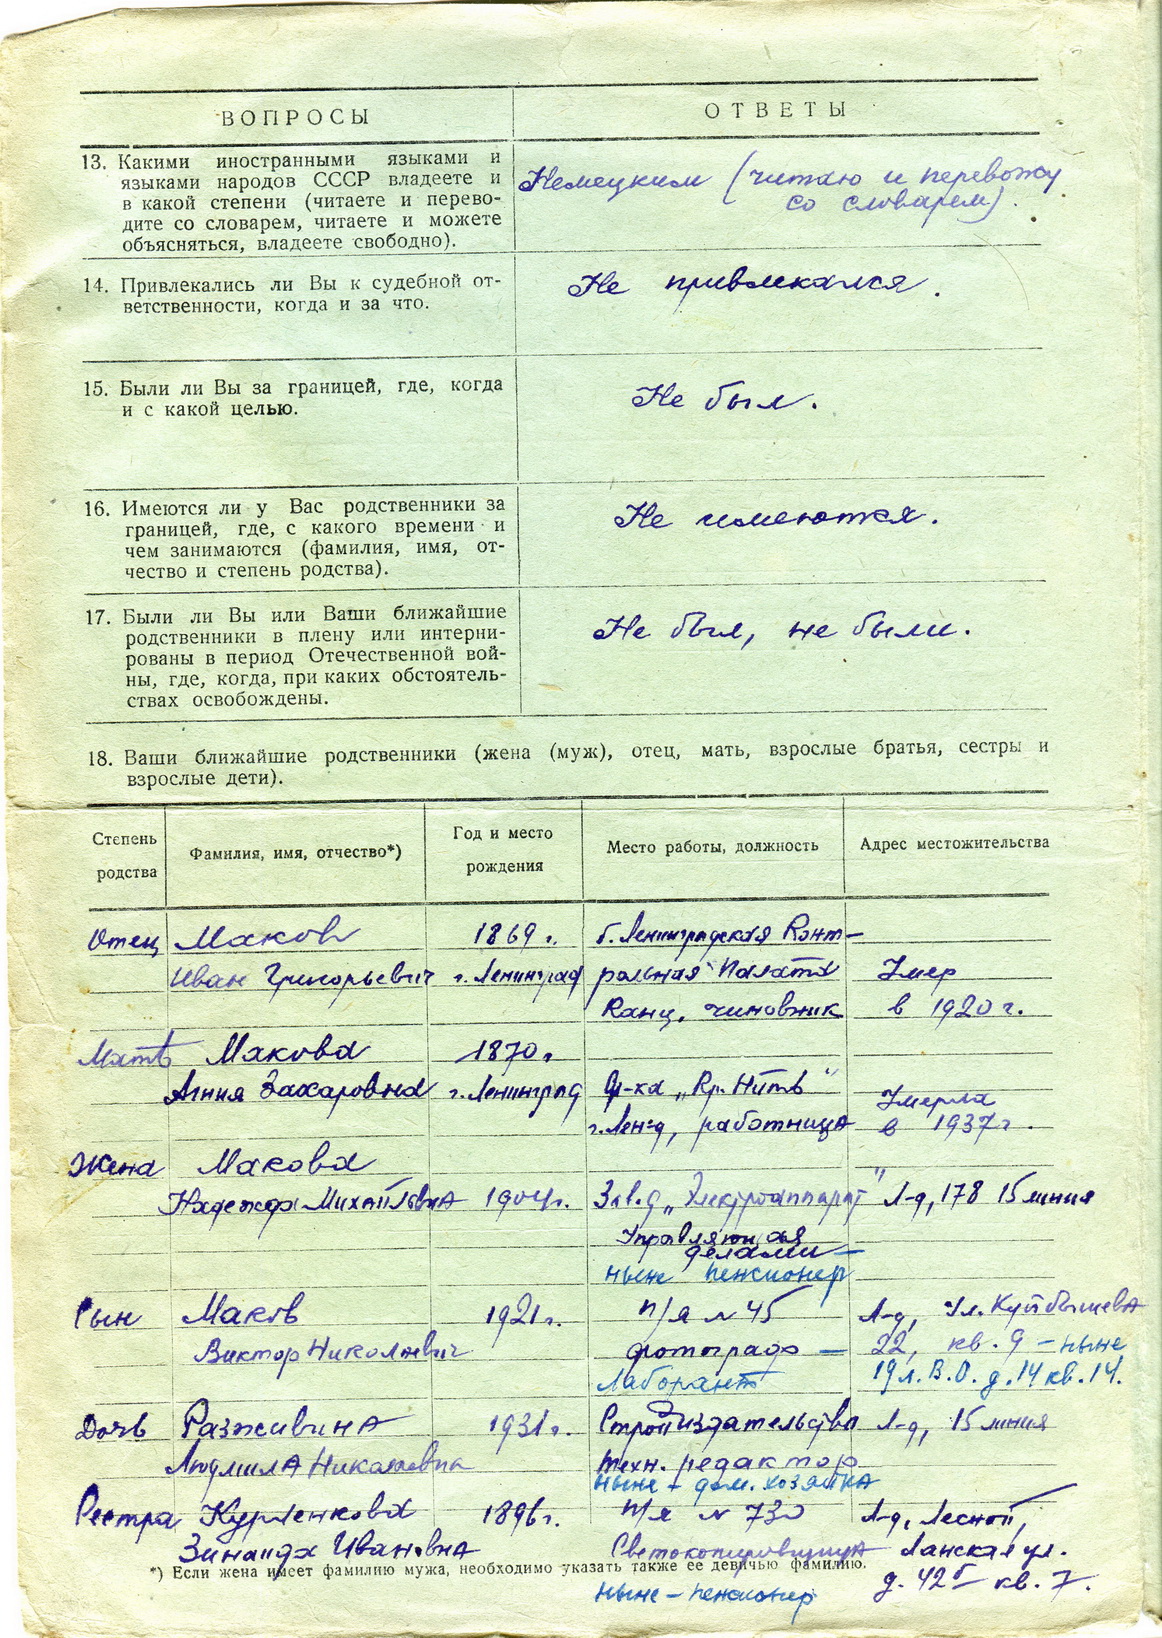 ВОПРОСЫ
ОТВЕТЫ
13. Какими иностранными языками и
языками народов СССР владеете и
в какой степени (читаете и перево-
дите со словарем, читаете и можете
объясняться, владеете свободно).
Немецким (читаю и перевожу
со словарем).
14. Привлекались ли Вы к судебной от-
ветственности, когда и за что.
Не привлекался.
15. Были ли Вы за границей, где, когда
и с какой целью.
Не был.
16. Имеются ли у Вас родственники за
границей, где, с какого времени и
чем занимаются (фамилия, имя, от-
чество и степень родства).
Не имеются.
17. Были ли Вы или Ваши ближайшие
родственники в плену или интерни-
рованы в период Отечественной вой-
ны, где, когда, при каких обстоятель-
ствах освобождены.
Не был, не были.
18. Ваши ближайшие родственники (жена (муж), отец, мать, взрослые братья, сестры и
взрослые дети).
Степень родства
Фамилия, имя, отчество*)
Год и место рождения
Место работы, должность
Адрес местожительства
Отец Маков 1869 г. б. Ленинградская Конт-
Иван Григорьевич г. Ленинград рольная Палата Умер
Канц. чиновник в 1920 г.
Мать Макова 1870 г.
Агния Захаровна г. Ленинград Ф-ка „Кр. Нить" Умерла
г. Лен-д, работница в 1937 г.
Жена Макова
Надежда Михайловна 1904 г. Зав. д „Электроаппарат" Л-д, 178 15 линия
Управляющая
делами —
ныне пенсионер
Сын Маков 1921 г. п/я N 45 Л-д, ул. Куйбышева
Виктор Николаевич фотограф — 22, кв. 9 — ныне
Лаборант 19 л. В.О. д. 14 кв. 14.
Дочь Разживина 1931 г. Стройиздательство Л-д, 15 линия
Людмила Николаевна техн. редактор
ныне - дом. хозяйка
Сестра Курленкова 1896 г. п/я N 730 Л-д, Лесной,
Зинаида Ивановна Светокопировщица Ланская ул.
*) Если жена имеет фамилию мужа, необходимо указать также ее девичью фамилию.
д. 42 кв. 7.
ныне - пенсионер